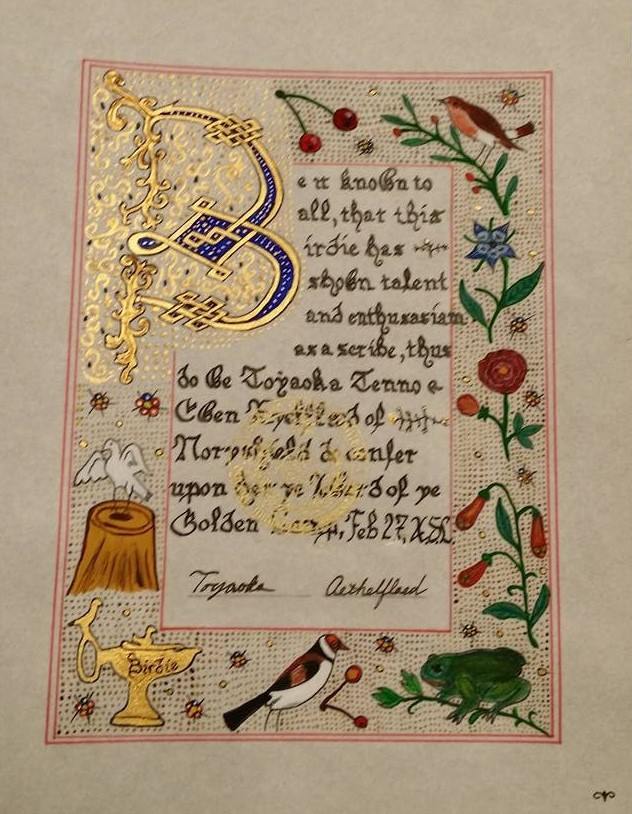 B
e it known to
all, that this
irdie has
shown talent
and enthusasiam
as a scribe, thus
do We Toyaoka Tenno e
of
do confer
upon her ye of ye
Golden Feb 27,
Toyaoka Aethelflaed
Birdie